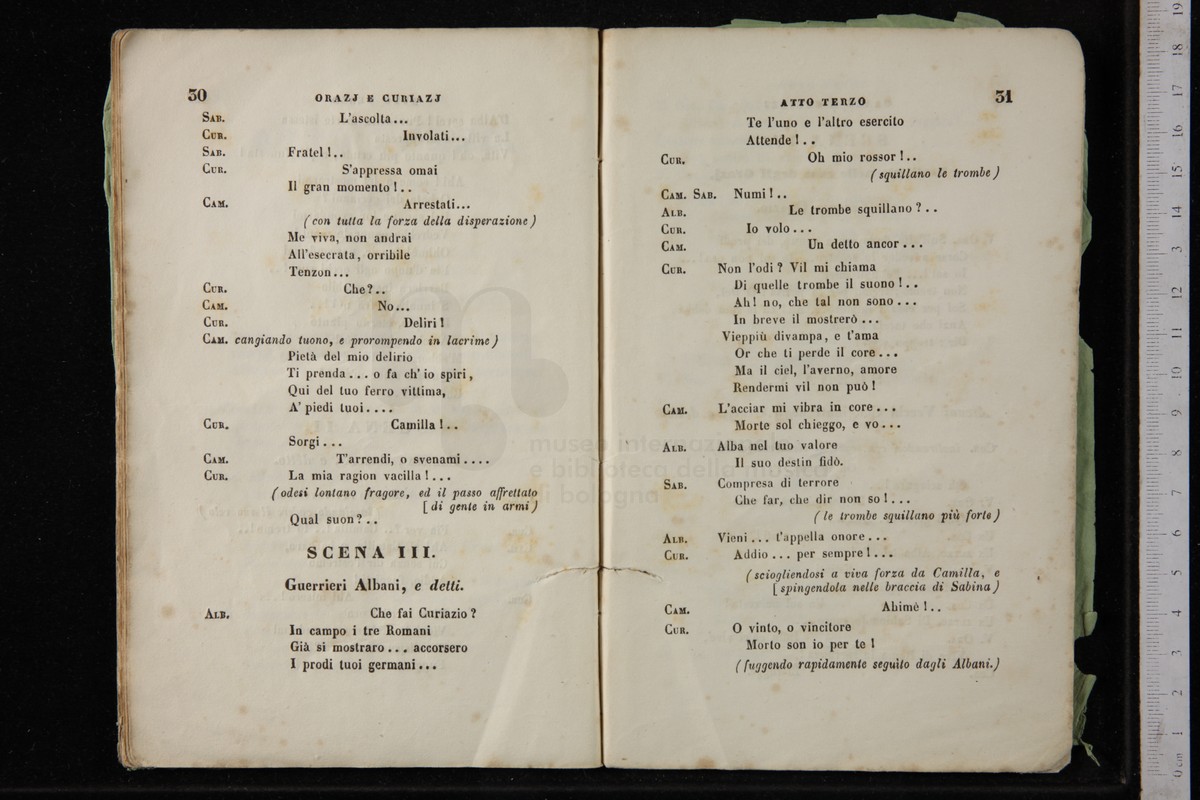 30
ORAZJ E CURIAZJ
SAB. L'ascolta...
CUR. Involati...
SAB. Fratel!..
CUR. S'appressa omai
Il gran momento!..
CAM. Arrestati...
(con tutta la forza della disperazione)
Me viva, non andrai
All'esecrata, orribile
Tenzon...
CUR. Che?..
CAM. No...
CUR. Deliri!
CAM. cangiando tuono, e prorompendo in lacrime)
Pietà del mio delirio
Ti prenda... o fa ch'io spiri,
Qui del tuo ferro vittima,
A' piedi tuoi....
CUR. Camilla!..
Sorgi...
CAM. T'arrendi, o svenami....
CUR. La mia ragion vacilla!...
(odesi lontano fragore, ed il passo affrettato
[di gente in armi)
Qual suon?..
SCENA III.
Guerrieri Albani, e detti.
ALB. Che fai Curiazio?
In campo i tre Romani
Già si mostraro... accorsero
I prodi tuoi germani...
ATTO TERZO
31
Te l'uno e l'altro esercito
Attende!..
CUR. Oh mio rossor!..
(squillano le trombe)
CAM. SAB. Numi!..
ALB. Le trombe squillano?..
CUR. Io volo...
CAM. Un detto ancor...
CUR. Non l'odi? Vil mi chiama
Di quelle trombe il suono!..
Ah! no, che tal non sono...
In breve il mostrerò...
Vieppiù divampa, e t'ama
Or che ti perde il core...
Ma il ciel, l'averno, amore
Rendermi vil non può!
CAM. L'acciar mi vibra in core...
Morte sol chieggo, e vo...
ALB. Alba nel tuo valore
Il suo destin fidò.
SAB. Compresa di terrore
Che far, che dir non so!...
(le trombe squillano più forte)
ALB. Vieni... t'appella onore...
CUR. Addio... per sempre!...
(sciogliendosi a viva forza da Camilla, e
[spingendola nelle braccia di Sabina)
CAM. Ahimè!..
CUR. O vinto, o vincitore
Morto son io per te!
(fuggendo rapidamente seguito dagli Albani.)
museo internazionale
e biblioteca della musica
di bologna
0 cm 1 2 3 4 5 6 7 8 9 10 11 12 13 14 15 16 17 18 19